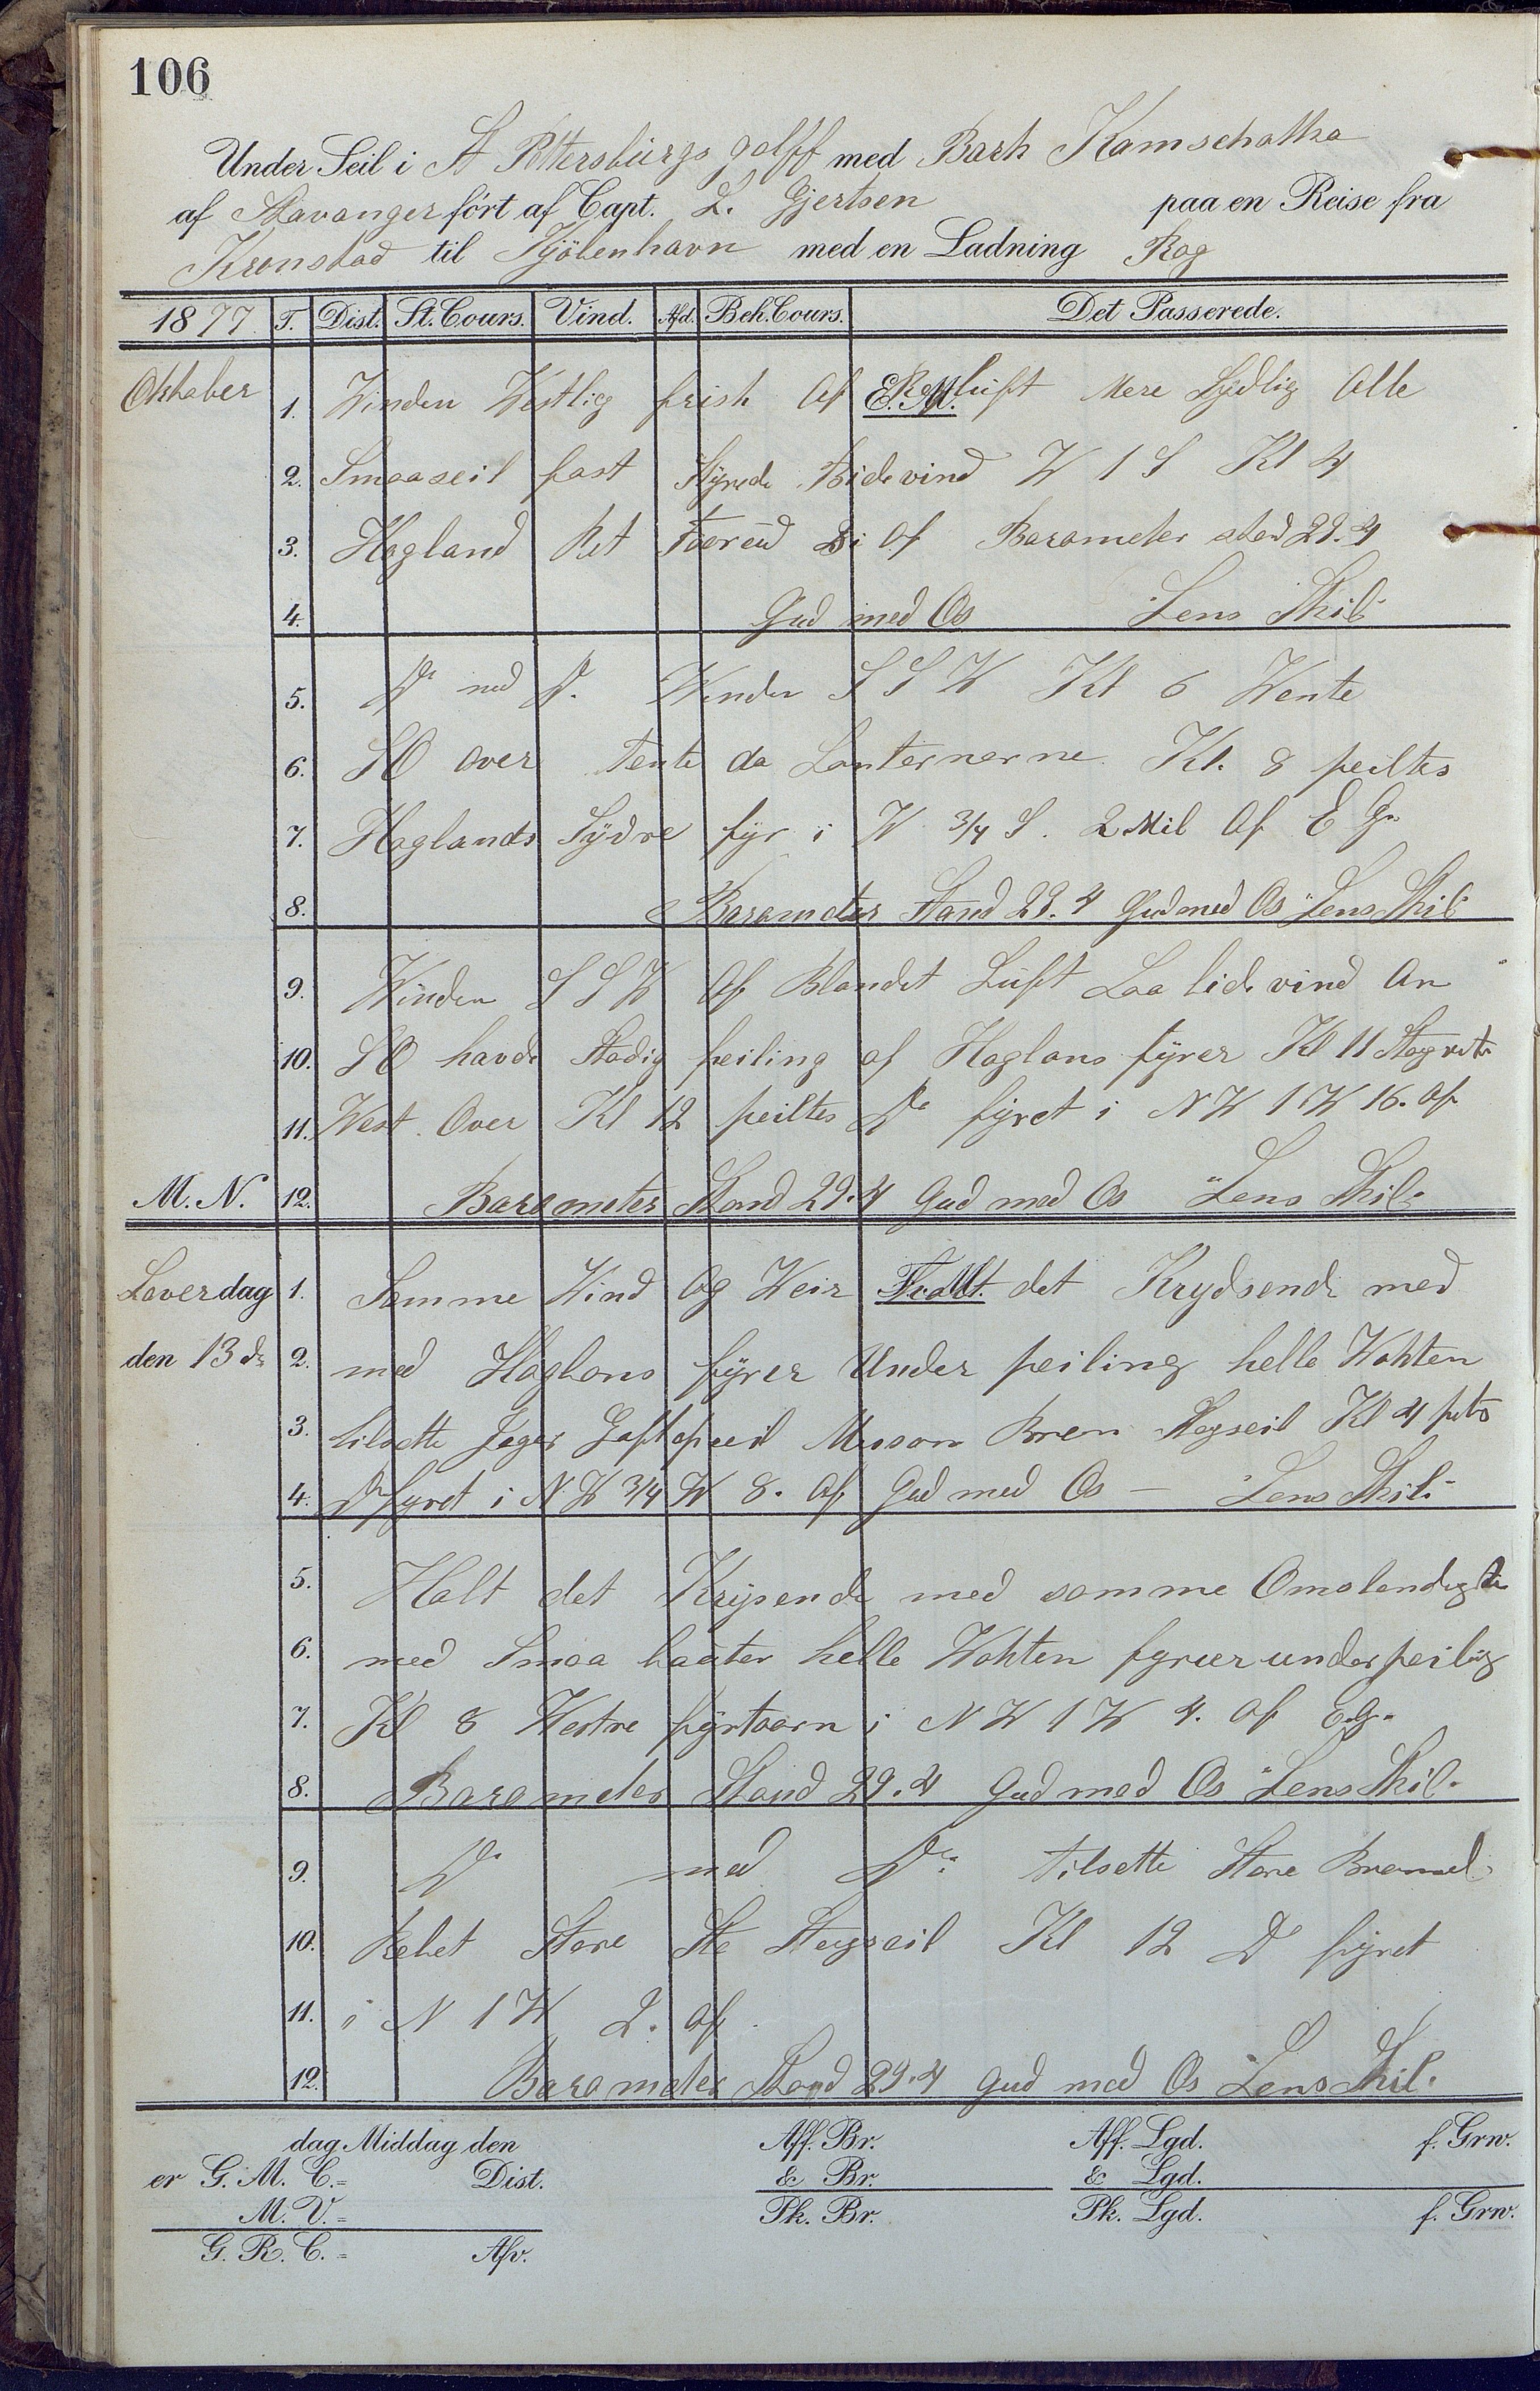 106
Under Seil i St Pettersburgs golff med Bark Kamschatka
af Stavanger fört af Capt. L. Gjertsen paa en Reise fra
Kronstad til Kjöbenhavn med en Ladning Rog
1877. T. Dist. St. Cours. Vind. Afd. Beh. Cours. Det Passerede.
E. M.
Oktober 1. Vinden Vestlig frisk Af luft Mere Sydlig Alle
2. Smaaseil fast Styrede Bidevind W 1 S Kl 4
3. Hogland Ret Foerud Af Barameter stand 29.4
4. Gud med Os Jens Thil
5. Do med Do. Winden S S W Kl 6 Wente
6. SO over tente da Lanternerne Kl. 8 peiltes
7. Hoglands Sÿdre fÿr i W 3/4 S. 2 Mil Af E G.
8. Barameter Stand 29.4 Gud med Os Jens Thil
9. Winden S S W Af Blandet Luft Laa bidevind An
10. SO havde Stadig peiling af Hoglans fÿrer Kl 11
11. West Over Kl 12 peiltes Do fÿret i NW 1 W 16. Af
M. N. 12. Barameter Stand 29.4 Gud med Os Jens Thil.
F. M.
Loverdag 1. Samme Wind Og Veir det Krydsende med
den 13 de 2. med Hoglans fÿrer Under peiling helle Wakten
3. tilsette Jager Mesan Bren Stagseil Kl 4
4. Do fyret i N W 3/4 W 8. Af Gud med Os – Jens Thil.
5. Halt det Krysende med samme
6. med Smaa helle Wakten fyrer under peiling
7. Kl 8 Westre fÿrtaarn i N W 1 W 4. Af E. G.
8. Barameter Stand 29.4 Gud med Os Jens Thil.
9. Do med Do. tilsette Store
10. Store Stagseil Kl 12 Do fÿret
11. i N 1 W 2. Af
12. Barameter Stand 29.4 Gud med Os Jens Thil.
dag Middag den Aff. Br. Aff. Lgd. f. Grw.
er G. M. C.= Dist. & Br. & Lgd.
M. V.= Pk. Br. Pk. Lgd. f. Grw.
G. R. C.= Afv.